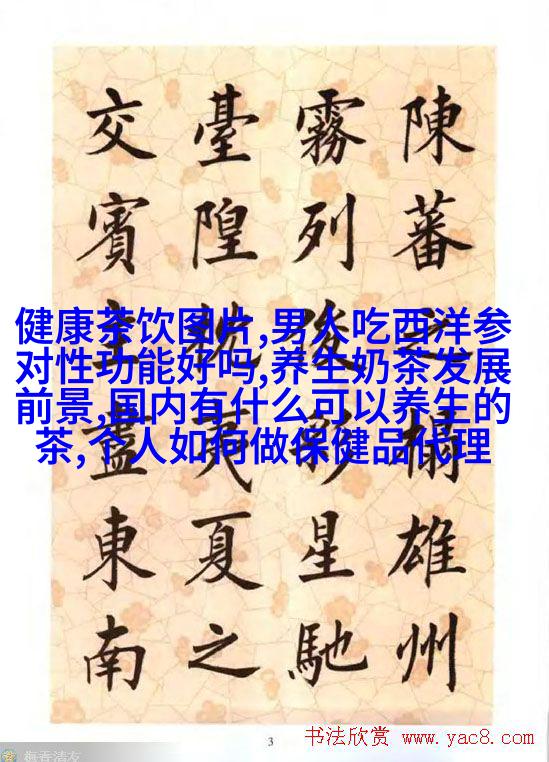 陳蕃之榻雄州
霧列俊彩星馳
臺隍枕夷夏之
交賓主盡東南
健康茶饮图片,男人吃西洋参
对性功能好吗,养生奶茶发展
前景,国内有什么可以养生的
茶,个人如何做保健品代理
3
书法欣赏 www.yac8.com